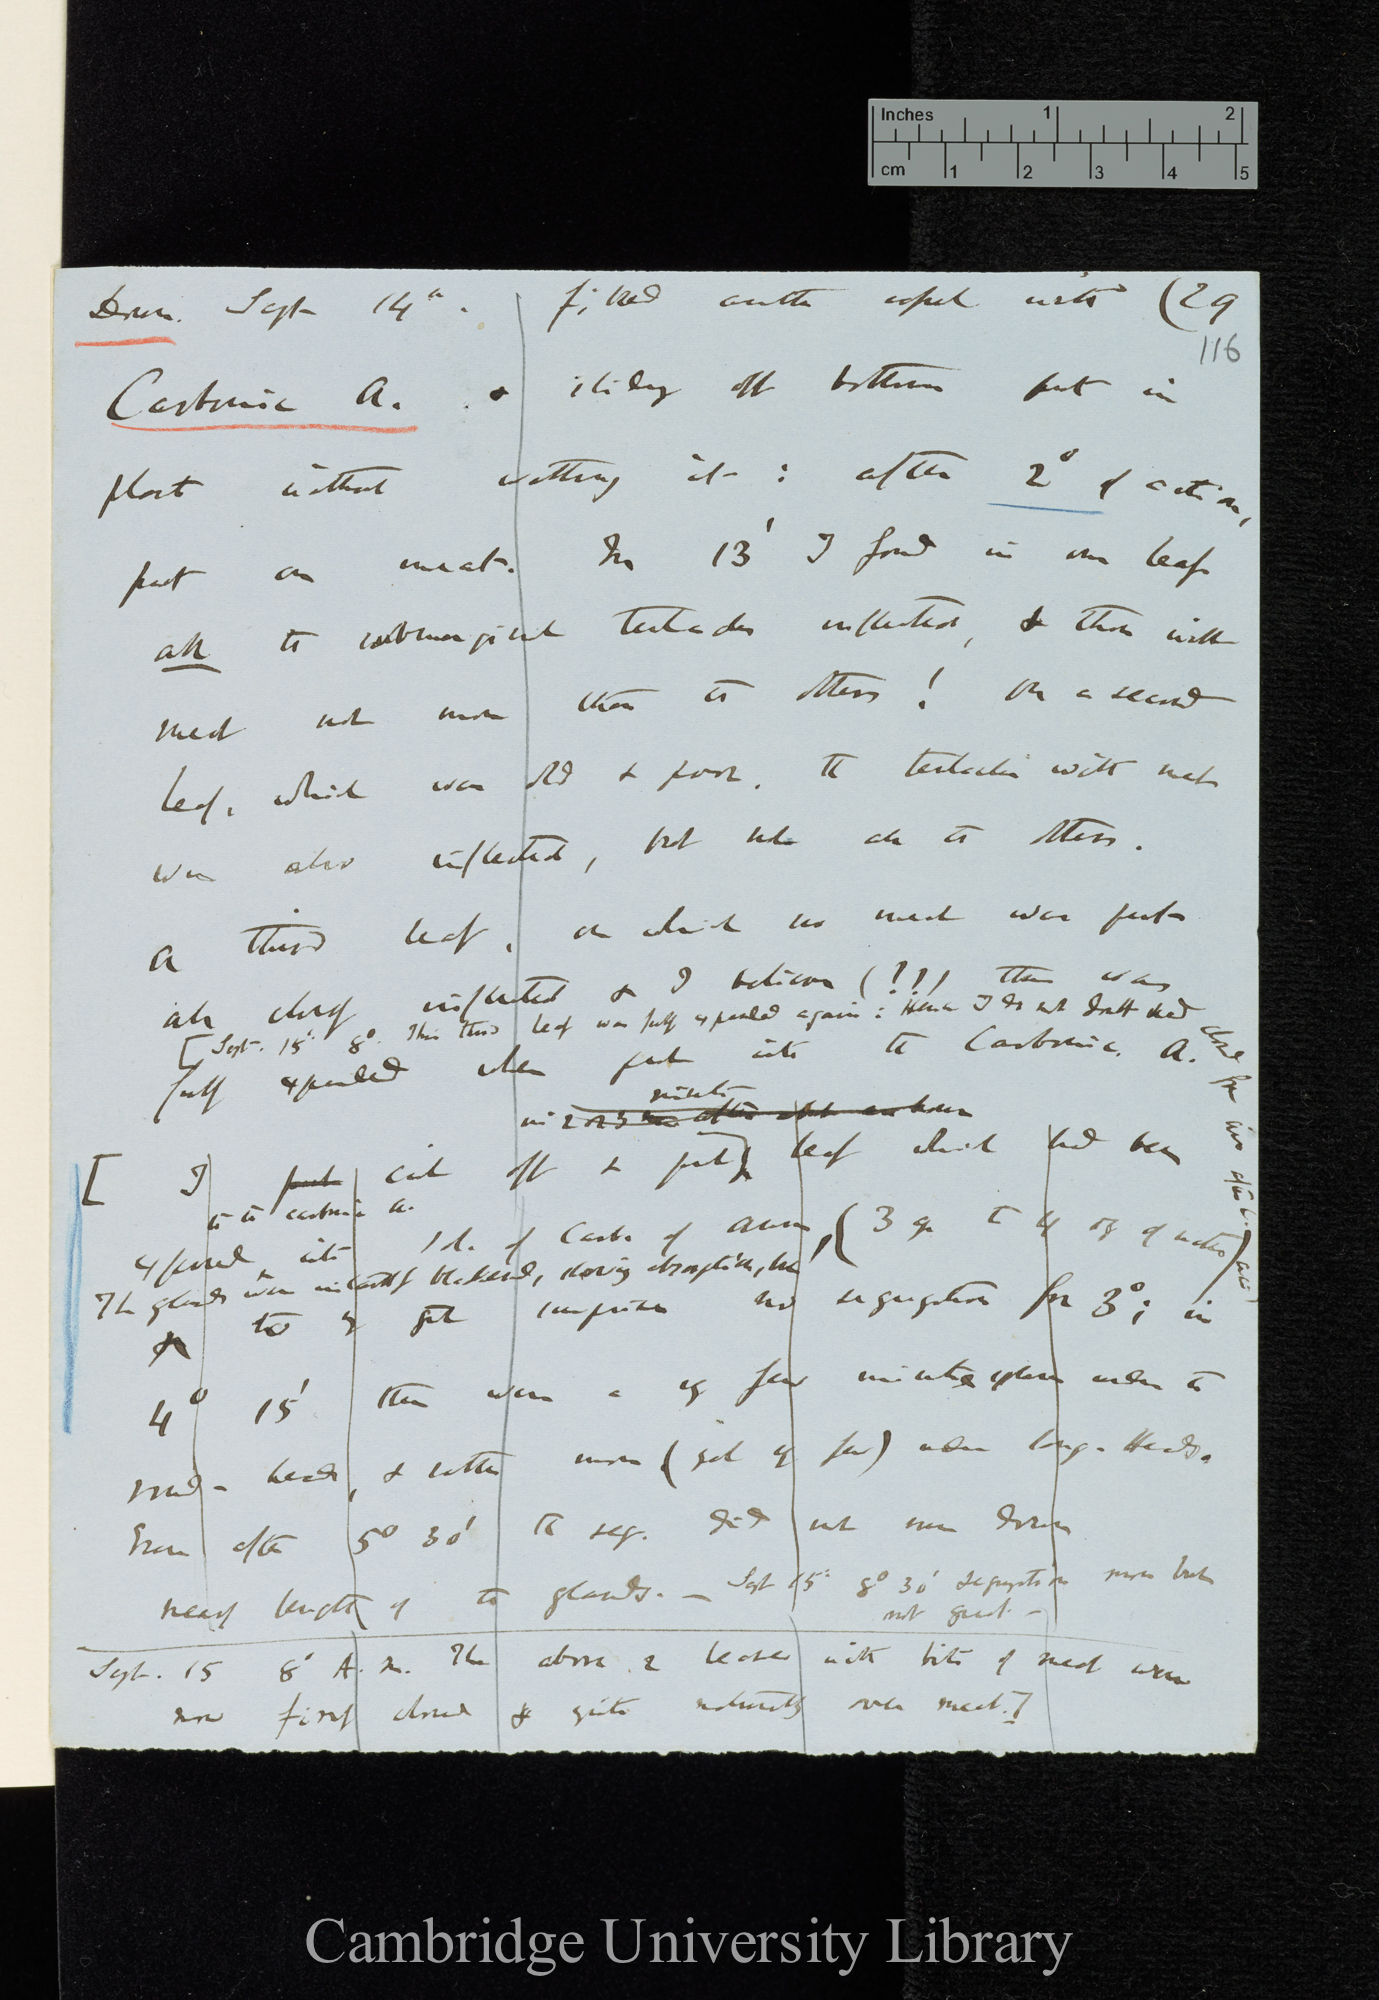 Inches 1 2
cm 1 2 3 4 5
Down. Sept 14th. filled another vessel with (29
116
Carbonic A. & sliding off bottom put in
plant without wetting it : after 2° of action,
put on meat. In 13' I found in one leaf
all the submarginal tentacles inflected, & those with
meat not more than the others! On a second
leaf, which was old & poor, the tentacles with meat
were also inflected, but not all the others.
A third leaf, on which no meat was put
all closely inflected & I believe (!?!) there was
[Sept. 15th 8°. This third leaf was fully expanded again: Hence I do not doubt it had
fully expanded when put into the Carbonic. A.
minutes
in 2 or 3 after
[ I put cut off & put leaf which had been
to the carbonic a.
exposed into sol. of Carb. of Amm, (3 gr to 4 oz of water)
The glands were instantly blackened, showing absorption, but
& to my great surprise no segregation for 3°; in
4° 15' there were a very few minute spheres under the
round-heads, & rather more (yet very few) under long-Heads.
Even after 5° 30' the seg. did not run down
nearly length of the glands. — Sept 15th 8° 30' segregation more but
not great. —
Sept. 15 8° A. M. The above 2 leaves with bits of meat were
now firmly closed & quite naturally over meat.]
Cambridge University Library